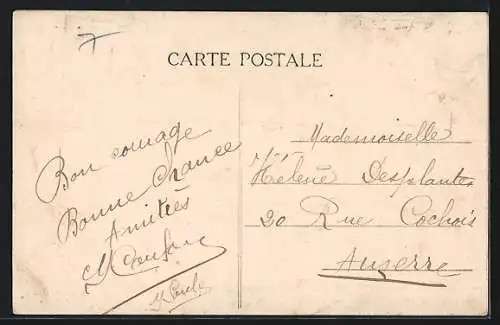 CARTE POSTALE
Bon courage
Bonne chance
Amitiés
Mademoiselle
Hélène Desplantes
20 Rue Cochois
Auxerre